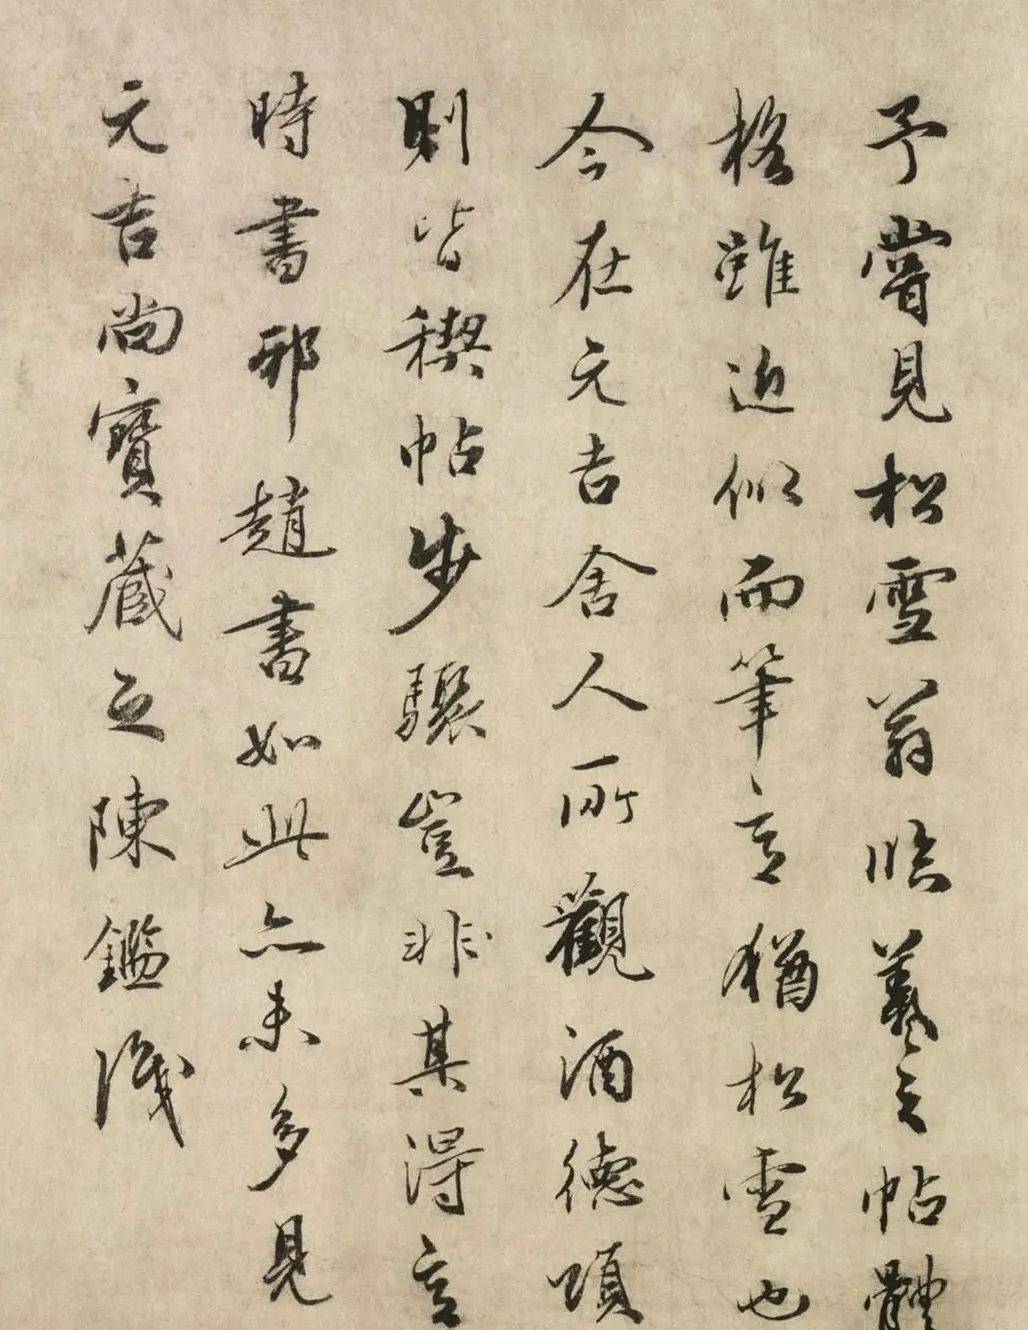 予嘗見松雪翁臨羲之帖體
格雖近似而筆意猶松雪也
今在元吉舍人所觀酒德頌
則皆稧帖步驟豈非其得意
時書邪趙書如此亦未多見
元吉尚寶藏之陳鑑識